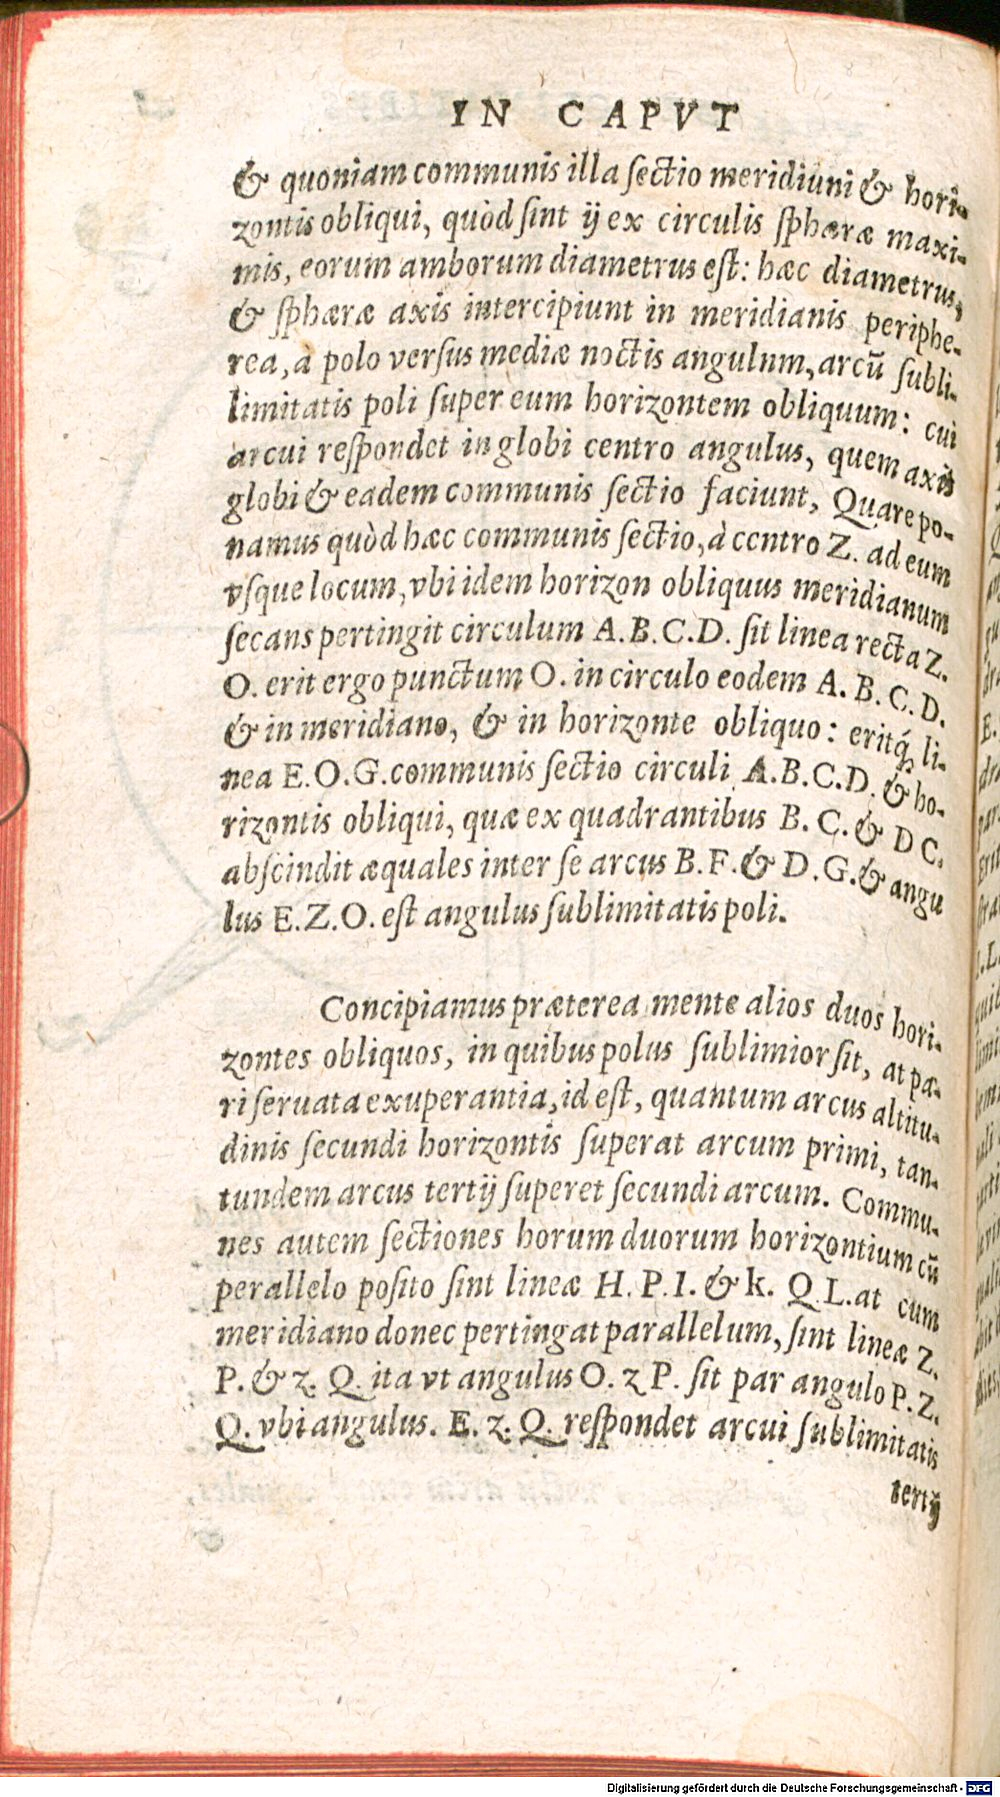 IN CAPVT
& quoniam communis illa sectio meridiuni & hori-
zontis obliqui, quòd sint ij ex circulis sphæræ maxi-
mis, eorum amborum diametrus est: hæc diametrus,
& sphæræ axis intercipiunt in meridianis periphe-
rea, à polo versus mediæ noctis angulnm, arcũ subli-
limitatis poli super eum horizontem obliquum: cui
arcui respondet in globi centro angulus, quem axis
globi & eadem communis sectio faciunt, Quare po-
namus quòd hæc communis sectio, à centro Z. ad eum
vsque locum, vbi idem horizon obliquus meridianum
secans pertingit circulum A.B.C.D. sit linea recta Z.
O. erit ergo punctum O. in circulo eodem A. B. C. D.
& in meridiano, & in horizonte obliquo: eritq́; li-
nea E.O.G. communis sectio circuli A.B.C.D. & ho-
rizontis obliqui, quæ ex quadrantibus B. C. & D C.
abscindit æquales inter se arcus B.F. & D.G. & angu
lus E.Z.O. est angulus sublimitatis poli.
Concipiamus præterea mente alios duos hori-
zontes obliquos, in quibus polus sublimior sit, at pa-
ri seruata exuperantia, id est, quantum arcus altitu-
dinis secundi horizontis superat arcum primi, tan-
tundem arcus tertij superet secundi arcum. Commu-
nes autem sectiones horum duorum horizontium cũ
perallelo posito sint lineæ H. P. I. & k. Q L. at cum
meridiano donec pertingat parallelum, sint lineæ Z.
P. & z. Q. ita vt angulus O. z P. sit par angulo P. Z.
Q. vbi angulus. E. z. Q. respondet arcui sublimitatis
tertij
Digitalisierung gefördert durch die Deutsche Forschungsgemeinschaft - DFG